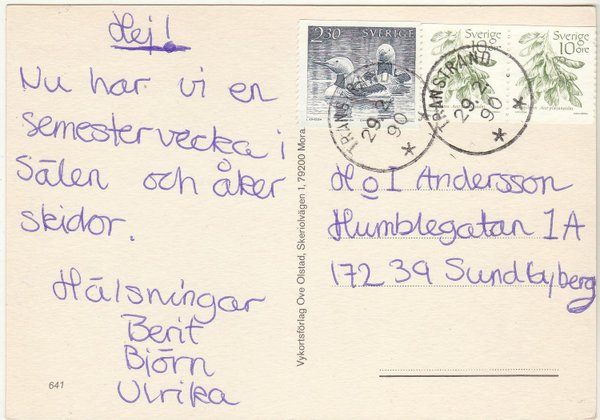 Hej!
Nu har vi en
semestervecka i
Sälen och åker
skidor.
Hälsningar
Berit
Björn
Ulrika
641
Vykortsförlag Ove Olstad, Skeriolvägen 1, 79200 Mora.
2.30 SVERIGE
Sverige
10 öre
Sverige
10 öre
TRANSTRAND
29.2.
90
TRANSTRAND
29.2.
90
H o I Andersson
Humblegatan 1A
172 39 Sundbyberg